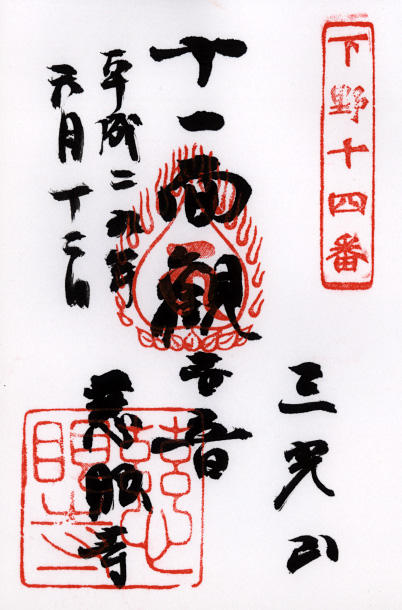 下野十四番
三光山
十一面觀世音
慈眼寺
平成二九年
六月十二日